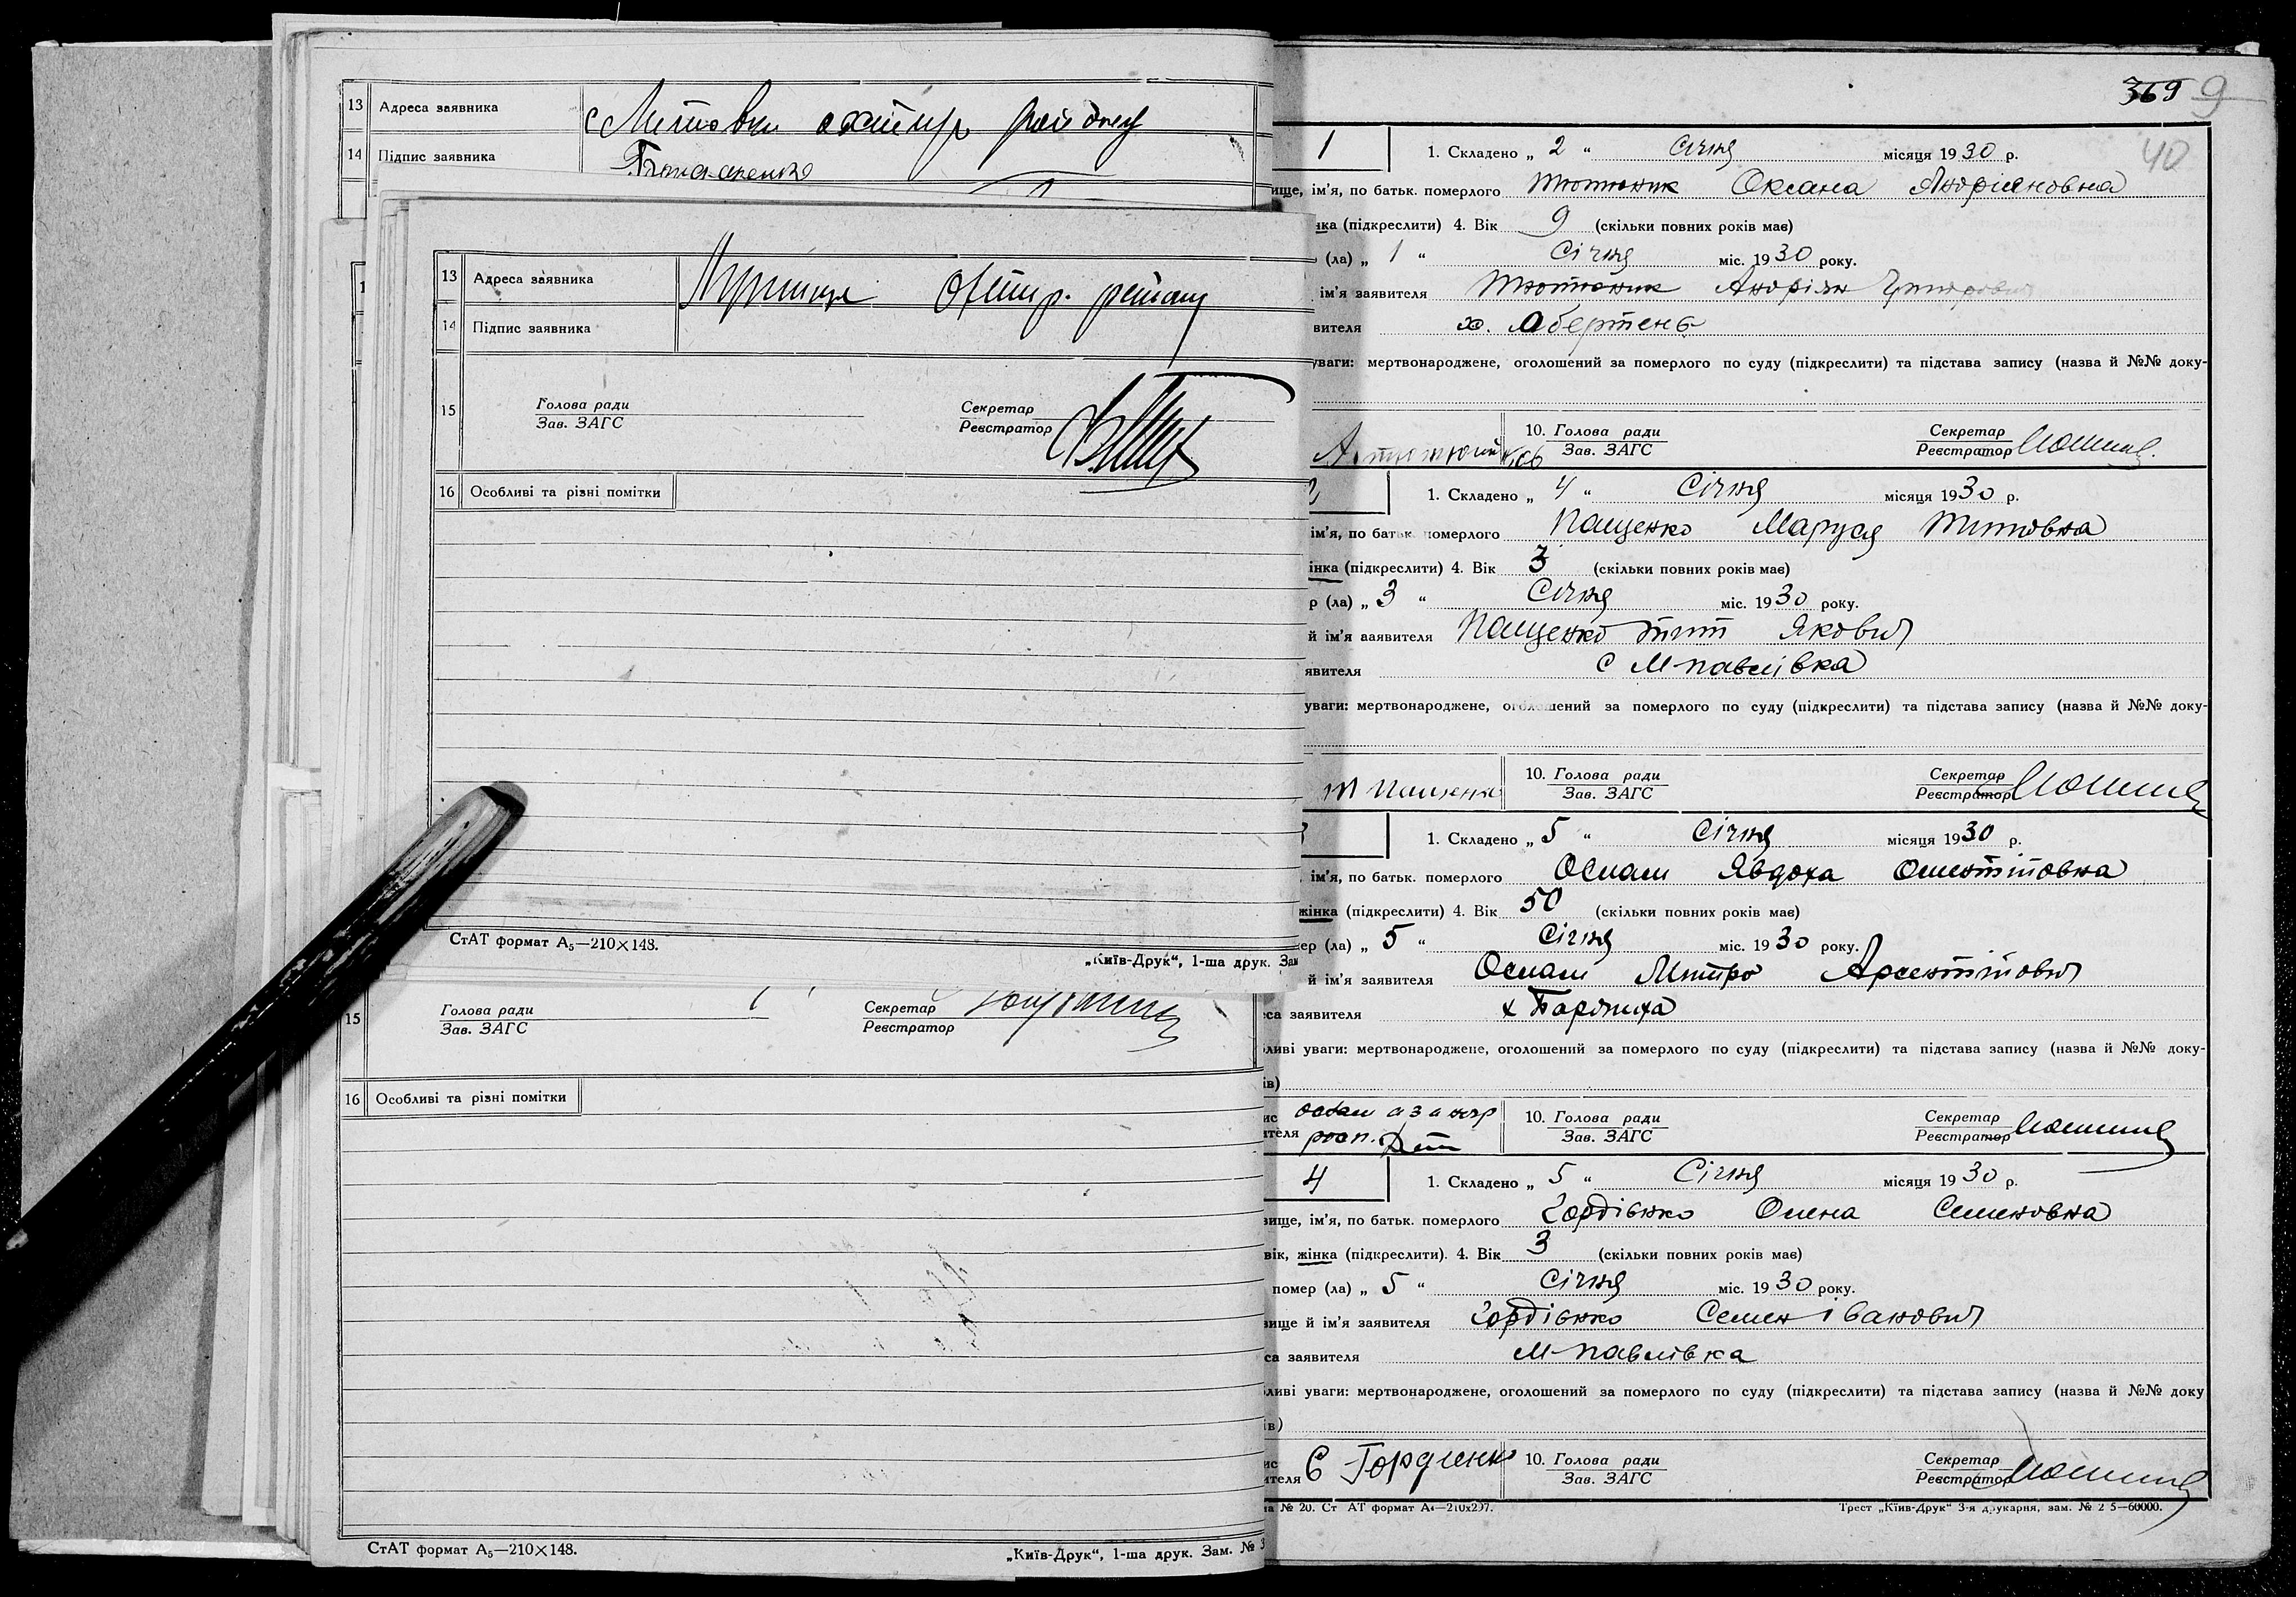 13 Адреса заявника
14 Підпис заявника
13 Адреса заявника
14 Підпис заявника
15 Голова ради Секретар
Зав. ЗАГС Реєстратор
16 Особливі та різні помітки
СтАТ формат А5—210×148.
„Київ-Друк“, 1-ша друк. Зам
15 Голова ради Секретар
Зав. ЗАГС Реєстратор
16 Особливі та різні помітки
СтАТ формат А5—210×148.
„Київ-Друк“, 1-ша друк. Зам. № 3
369 9
40
1 1. Складено „ 2 “ Січня місяця 1930 р.
ище, ім’я, по батьк. померлого Тютюник Оксана Андріяновна
нка (підкреслити) 4. Вік 9 (скільки повних років має)
(ла) „ 1 “ Січня міс. 1930 року.
ім’я заявителя Тютюник Андріян
вителя х.
уваги: мертвонароджене, оголошений за померлого по суду (підкреслити) та підстава запису (назва й №№ доку-
10. Голова ради Секретар
Зав. ЗАГС Реєстратор
2 1. Складено „ 4 “ Січня місяця 1930 р.
ім’я, по батьк. померлого Пащенко Маруся Титовна
інка (підкреслити) 4. Вік 3 (скільки повних років має)
р (ла) „ 3 “ Січня міс. 1930 року.
й ім’я заявителя Пащенко Тит Якович
явителя с М-павлівка
уваги: мертвонароджене, оголошений за померлого по суду (підкреслити) та підстава запису (назва й №№ доку-
Т Пащенко 10. Голова ради Секретар
Зав. ЗАГС Реєстратор
3 1. Складено „ 5 “ Січня місяця 1930 р.
ім’я, по батьк. померлого Явдоха
жінка (підкреслити) 4. Вік 50 (скільки повних років має)
ер (ла) „ 5 “ Січня міс. 1930 року.
й ім’я заявителя Митро Арсентійович
са заявителя х
ливі уваги: мертвонароджене, оголошений за померлого по суду (підкреслити) та підстава запису (назва й №№ доку-
ів)
ис 10. Голова ради Секретар
ителя Зав. ЗАГС Реєстратор
4 1. Складено „ 5 “ Січня місяця 1930 р.
вище, ім’я, по батьк. померлого Гордієнко Олена Семеновна
вік, жінка (підкреслити). 4. Вік 3 (скільки повних років має)
помер (ла) „ 5 “ Січня міс. 1930 року.
вище й ім’я заявителя Гордієнко Семен Іванович
са заявителя М-павлівка
ливі уваги: мертвонароджене, оголошений за померлого по суду (підкреслити) та підстава запису (назва й №№ доку
ів)
ис С Гордиенко 10. Голова ради Секретар
ителя Зав. ЗАГС Реєстратор
на № 20. Ст АТ формат А4—210х297.
Трест „Київ-Друк“ 3-я друкарня, зам. № 2 5—60000.